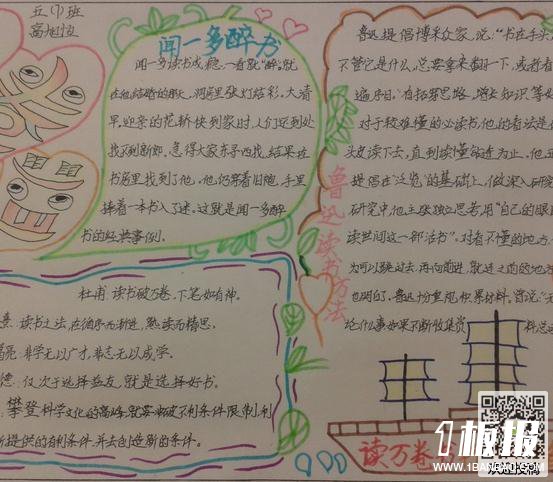 五(1)班
高旭
闻一多醉书
闻一多读书成瘾,一看就"醉",就
在他结婚的那天,洞房里张灯结彩。大清
早,迎亲的花轿快到家时,人们还到处
找不到新郎。急得大家东寻西找,结果在
书房里找到了他。他仍穿着旧袍,手里
捧着一本书入了迷。这就是闻一多醉
书的经典事例。
鲁迅提倡博采众家,说:"书在手头
不管它是什么,总要拿来翻一下,或者看
遍序目
有拓宽思路,增长知识等好
对于较难懂的必读书,他的看法是
头皮读下去,直到读懂钻进为止。他还
提倡在"泛览"的基础上,做深入研究
研究中,他主张独立思考,用"自己的眼
读世间这一部活书"。对看不懂的地方
为可以跳过去,再向前进,就连之前的地
也明白了。鲁迅十分重视积累材料。曾说:"
论什么事如果不断收集资
料
鲁迅读书方法
杜甫:读书破万卷,下笔如有神。
熹:读书之法,在循序而渐进,熟读而精思。
葛亮:非学无以广才,非志无以成学。
德:仅次于选择益友,就是选择好书。
攀登科学文化的高峰,就要冲破不利条件限制,利
所提供的有利条件,并去创造新的条件。
读万卷书
1板报
WWW.1BANBAO.COM
欢迎投稿